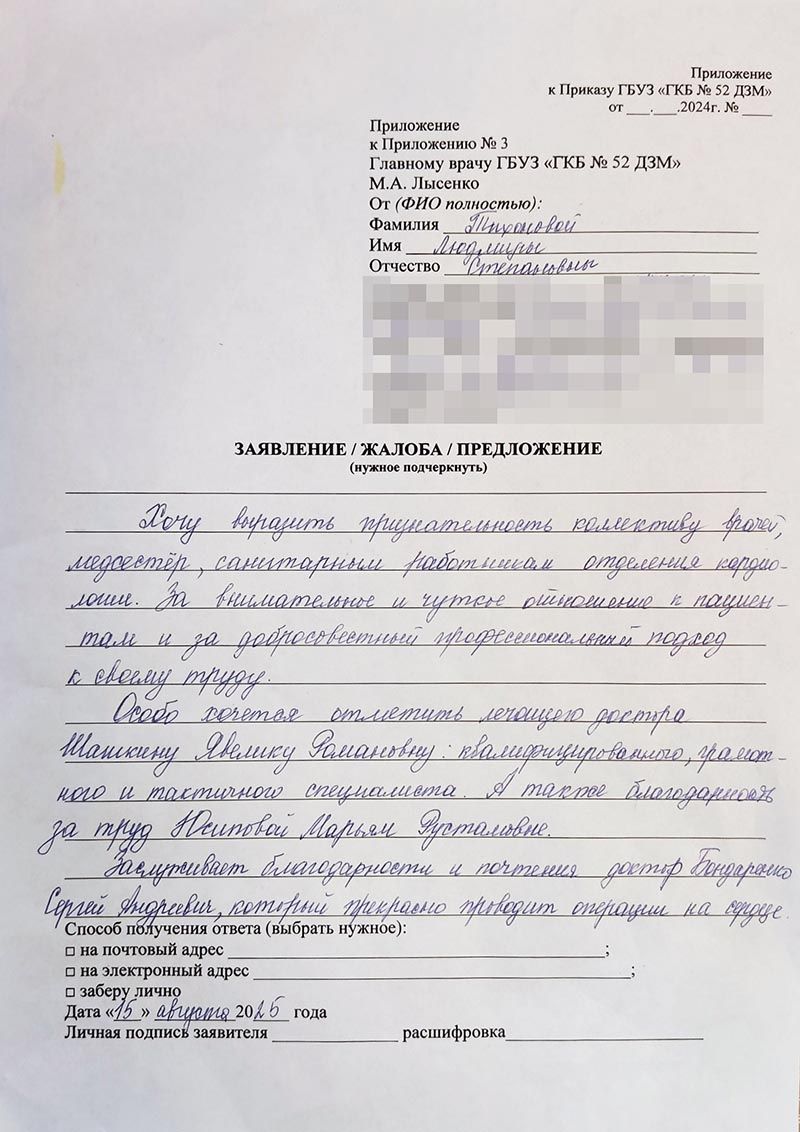 Приложение
к Приказу ГБУЗ «ГКБ № 52 ДЗМ»
от ___.___.2024г. № ____
Приложение
к Приложению № 3
Главному врачу ГБУЗ «ГКБ № 52 ДЗМ»
М.А. Лысенко
От (ФИО полностью):
Фамилия Тихоновой
Имя Людмилы
Отчество Степановны
ЗАЯВЛЕНИЕ / ЖАЛОБА / ПРЕДЛОЖЕНИЕ
(нужное подчеркнуть)
Хочу выразить признательность коллективу врачей,
медсестёр, санитарным работникам отделения кардио-
логии. За внимательное и чуткое отношение к пациен-
там и за добросовестный профессиональный подход
к своему труду.
Особо хочется отметить лечащего доктора
Шашкину Явелику Романовну: квалифицированного, грамот-
ного и тактичного специалиста. А также благодарность
за труд Юсиповой Марьям Рустамовне.
Заслуживает благодарности и почтения доктор Бондаренко
Сергей Андреевич, который прекрасно проводит операции на сердце.
Способ получения ответа (выбрать нужное):
□ на почтовый адрес ___;
□ на электронный адрес ___;
□ заберу лично
Дата «15» августа 2025 года
Личная подпись заявителя ___ расшифровка___